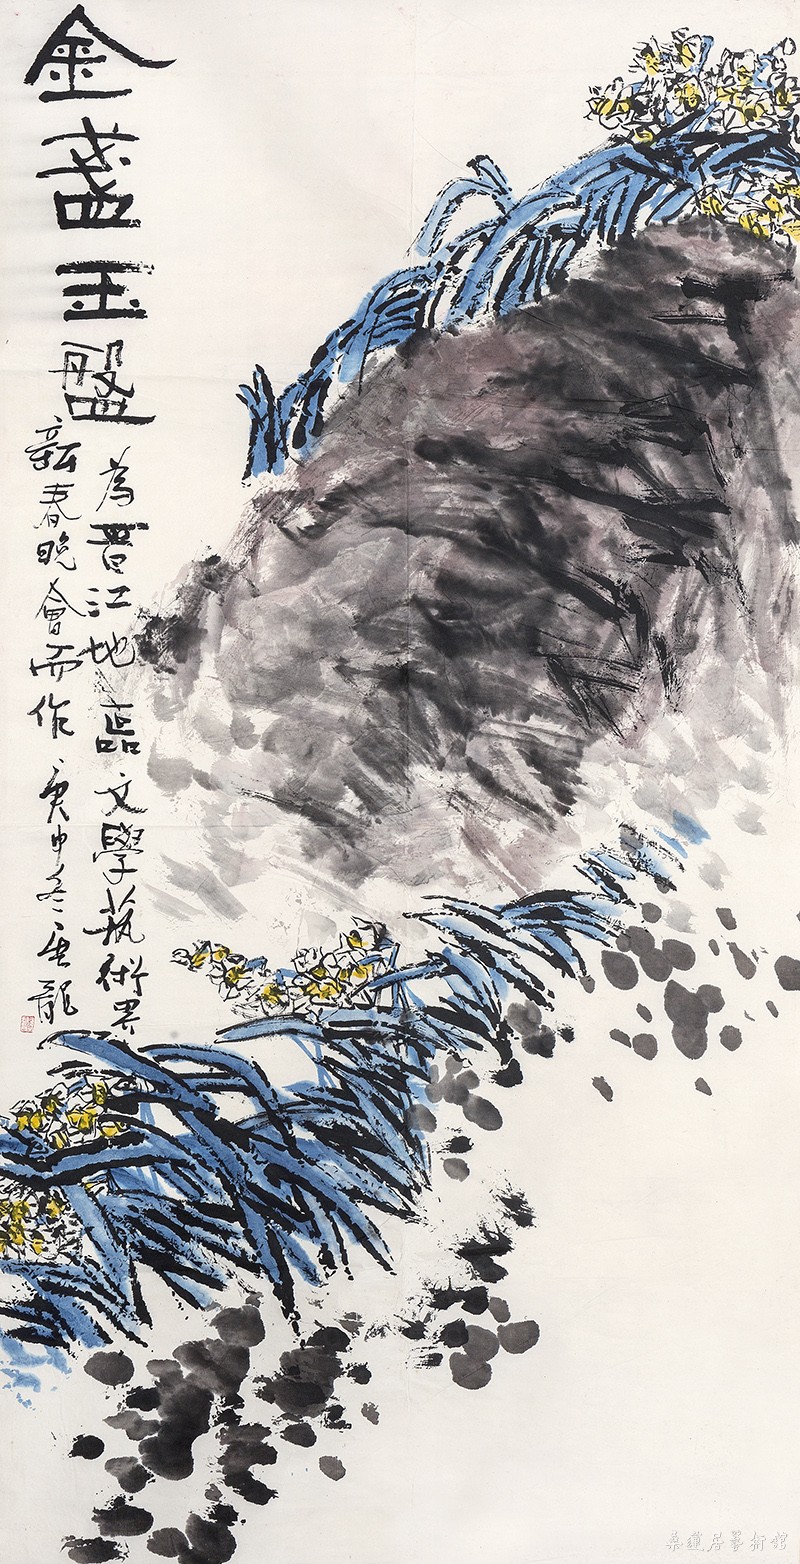 金盞玉盤
為晋江地區文學藝術界
新春晚會而作 庚申冬 龍
居藝術館